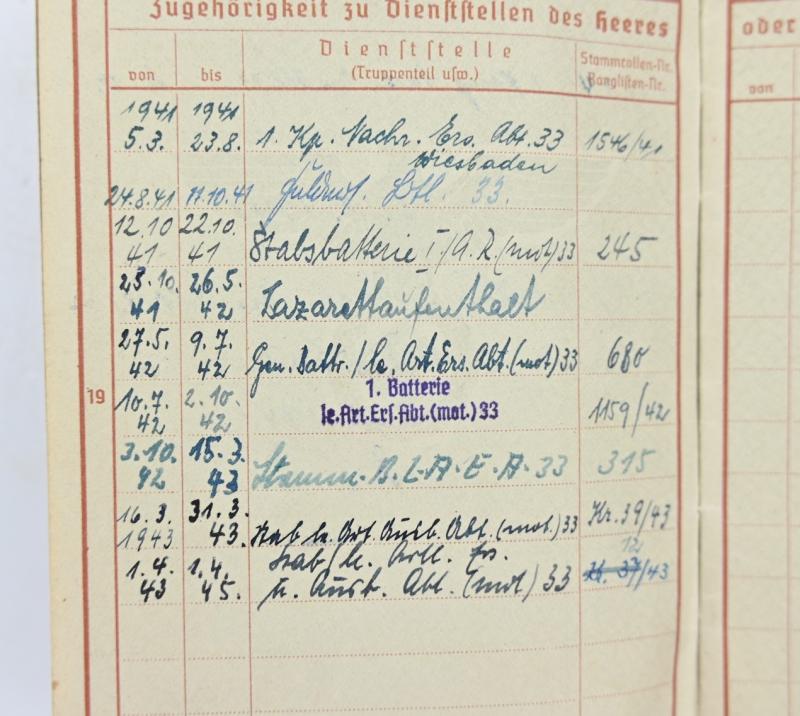 Zugehörigkeit zu Dienststellen des Heeres
oder
von bis Dienststelle (Truppenteil usw.) Stammrollen-Nr. Ranglisten-Nr.
von
1941 1941
5.3. 23.8. 1. Kp. Nachr. Ers. Abt. 33 1546/41
Wiesbaden
24.8.41 11.10.41 33.
12.10 22.10.
41 41 Stabsbatterie I/A.R. (mot) 33 245
23.10. 26.5.
41 42 Lazarettaufenthalt
27.5. 9.7.
42 42 Gen. Battr. / le. Art. Ers. Abt. (mot) 33 680
19 10.7. 2.10. 1. Batterie
42 42 le.Art.Ers.Abt.(mot.) 33 1159/42
3.10. 15.3.
42 43 Stamm. B. L. A. E. A. 33 315
16.3. 31.3.
1943 43. Stab le. Art. Ausb. Abt. (mot.) 33 Kr. 39/43
1.4. 1.4. Stab/le. Artl. Ers. 12
43 45. u. Ausb. Abt. (mot) 33 /43